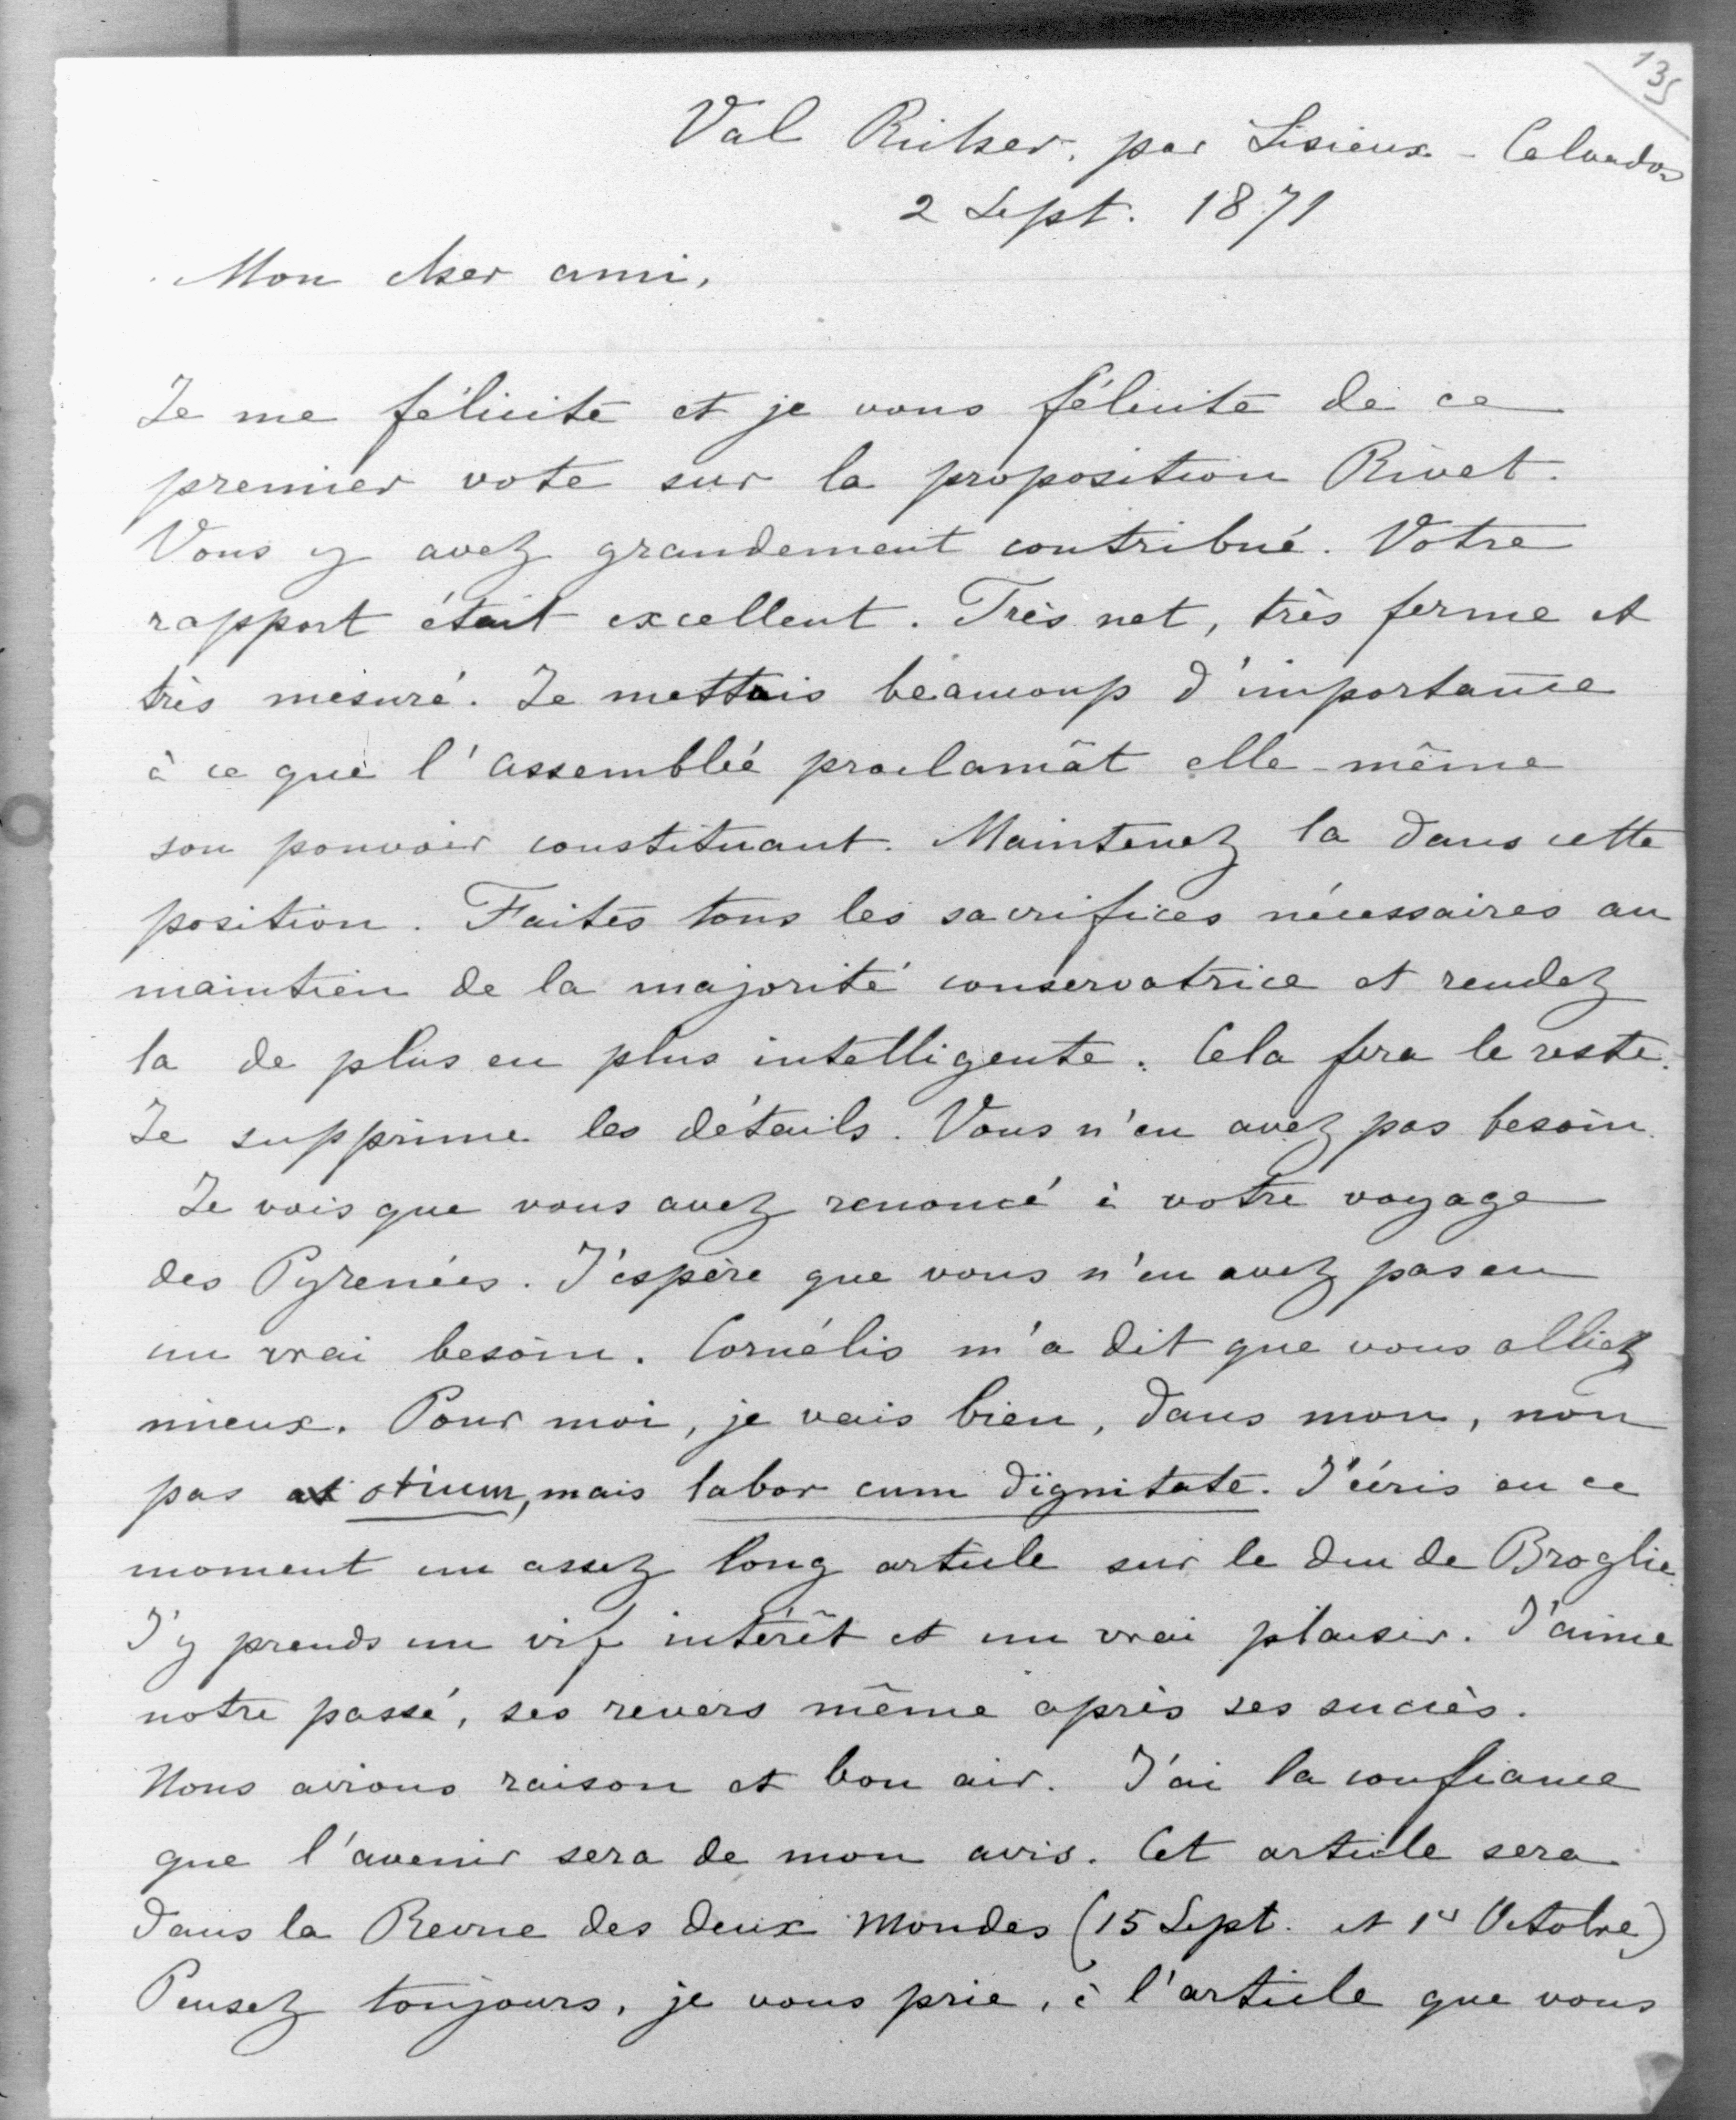 135
Val Richer, par Lisieux - Calvados
2 Sept. 1871
Mon cher ami,
Je me félicite et je vous félicite de ce
premier vote sur la proposition Rivet.
Vous y avez grandement contribué. Votre
rapport était excellent. Très net, très ferme et
très mesuré. Je mettais beaucoup d'importance
à ce que l'assemblée proclamât elle-même
son pouvoir constituant. Maintenez la dans cette
position. Faites tous les sacrifices nécessaires au
maintien de la majorité conservatrice et rendez
la de plus en plus intelligente. Cela fera le reste.
Je supprime les détails. Vous n'en avez pas besoin.
Je vois que vous avez renoncé à votre voyage
des Pyrenées. J'espère que vous n'en avez pas eu
un vrai besoin. Cornélis m'a dit que vous alliez
mieux. Pour moi, je vais bien, dans mon, non
pas otium, mais labor cum dignitate. J'écris en ce
moment un assez long article sur le duc de Broglie.
J'y prends un vif intérêt et un vrai plaisir. J'aime
notre passé, ses revers même après ses succès.
Nous avions raison et bon air. J'ai la confiance
que l'avenir sera de mon avis. Cet article sera
dans la Revue des deux Mondes (15 Sept. et 1er Octobre)
Pensez toujours, je vous prie, à l'article que vous